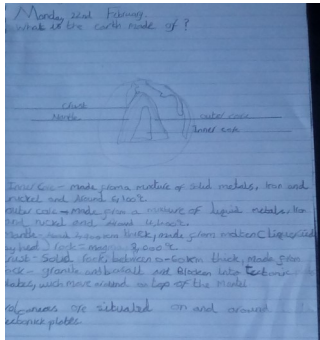 Monday 22nd February.
What is the earth made of?
Crust
Mantle
outer core
Inner core
Inner Core - made from a mixture of solid metals, Iron and
nickel and around
outer core - Made from a mixture of liquid metals, Iron
and nickel and around
Mantle - thick, made from molten (liquified
by heat) rock = magma
Crust - Solid rock, between thick, made from
rock - granite and and Broken into tectonic
plates, wich move around on top of the mantel
volcanoes are situated on and around
tectonick plates.